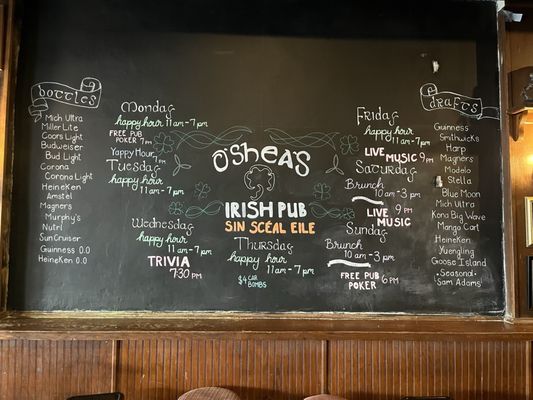 bottles
Mich Ultra
Miller Lite
Coors Light
Budweiser
Bud Light
Corona
Corona Light
Heineken
Amstel
Magners
Murphy's
Nutrl
SunCruiser
Guinness 0.0
Heineken 0.0
Monday
happy hour 11am-7pm
FREE PUB
POKER 7pm
YappyHour
Tuesday
happy hour
11am-7pm
Wednesday
happy hour
11am-7pm
TRIVIA
7:30 PM
O'Shea's
IRISH PUB
SIN SCÉAL EILE
Thursday
happy hour
11am-7pm
$4 CAR
BOMBS
Friday
happy hour
11am-7pm
LIVE MUSIC 9pm
Saturday
Brunch
10am-3pm
LIVE 9PM
MUSIC
Sunday
Brunch
10am-3pm
FREE PUB 6PM
POKER
drafts
Guinness
Smithwicks
Harp
Magners
Modelo
Stella
Blue Moon
Mich Ultra
Kona Big Wave
Mango Cart
Heineken
Yuengling
Goose Island
-Seasonal-
Sam Adams